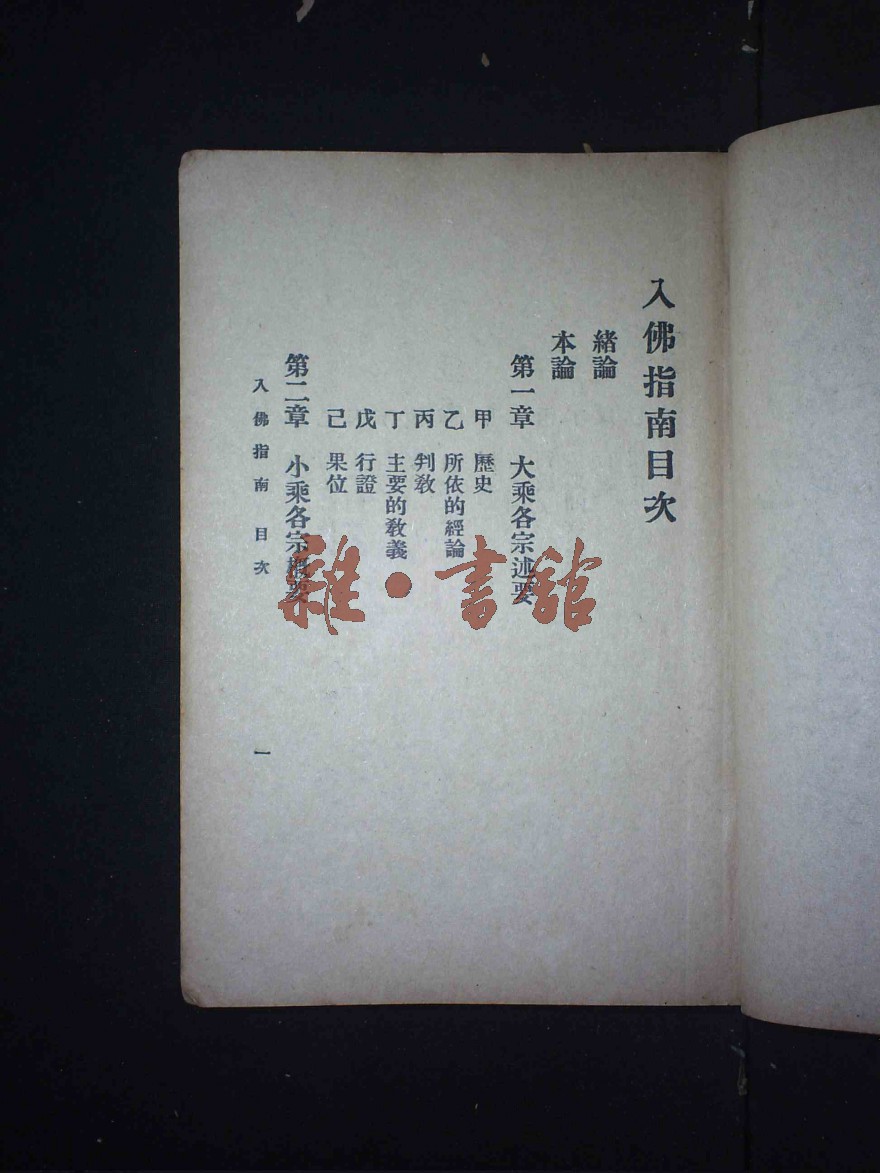 入佛指南目次
緒論
本論
第一章 大乘各宗述要
甲 歷史
乙 所依的經論
丙 判教
丁 主要的教義
戊 行證
己 果位
第二章 小乘各宗概要
入佛指南 目次
一
雜·書舘